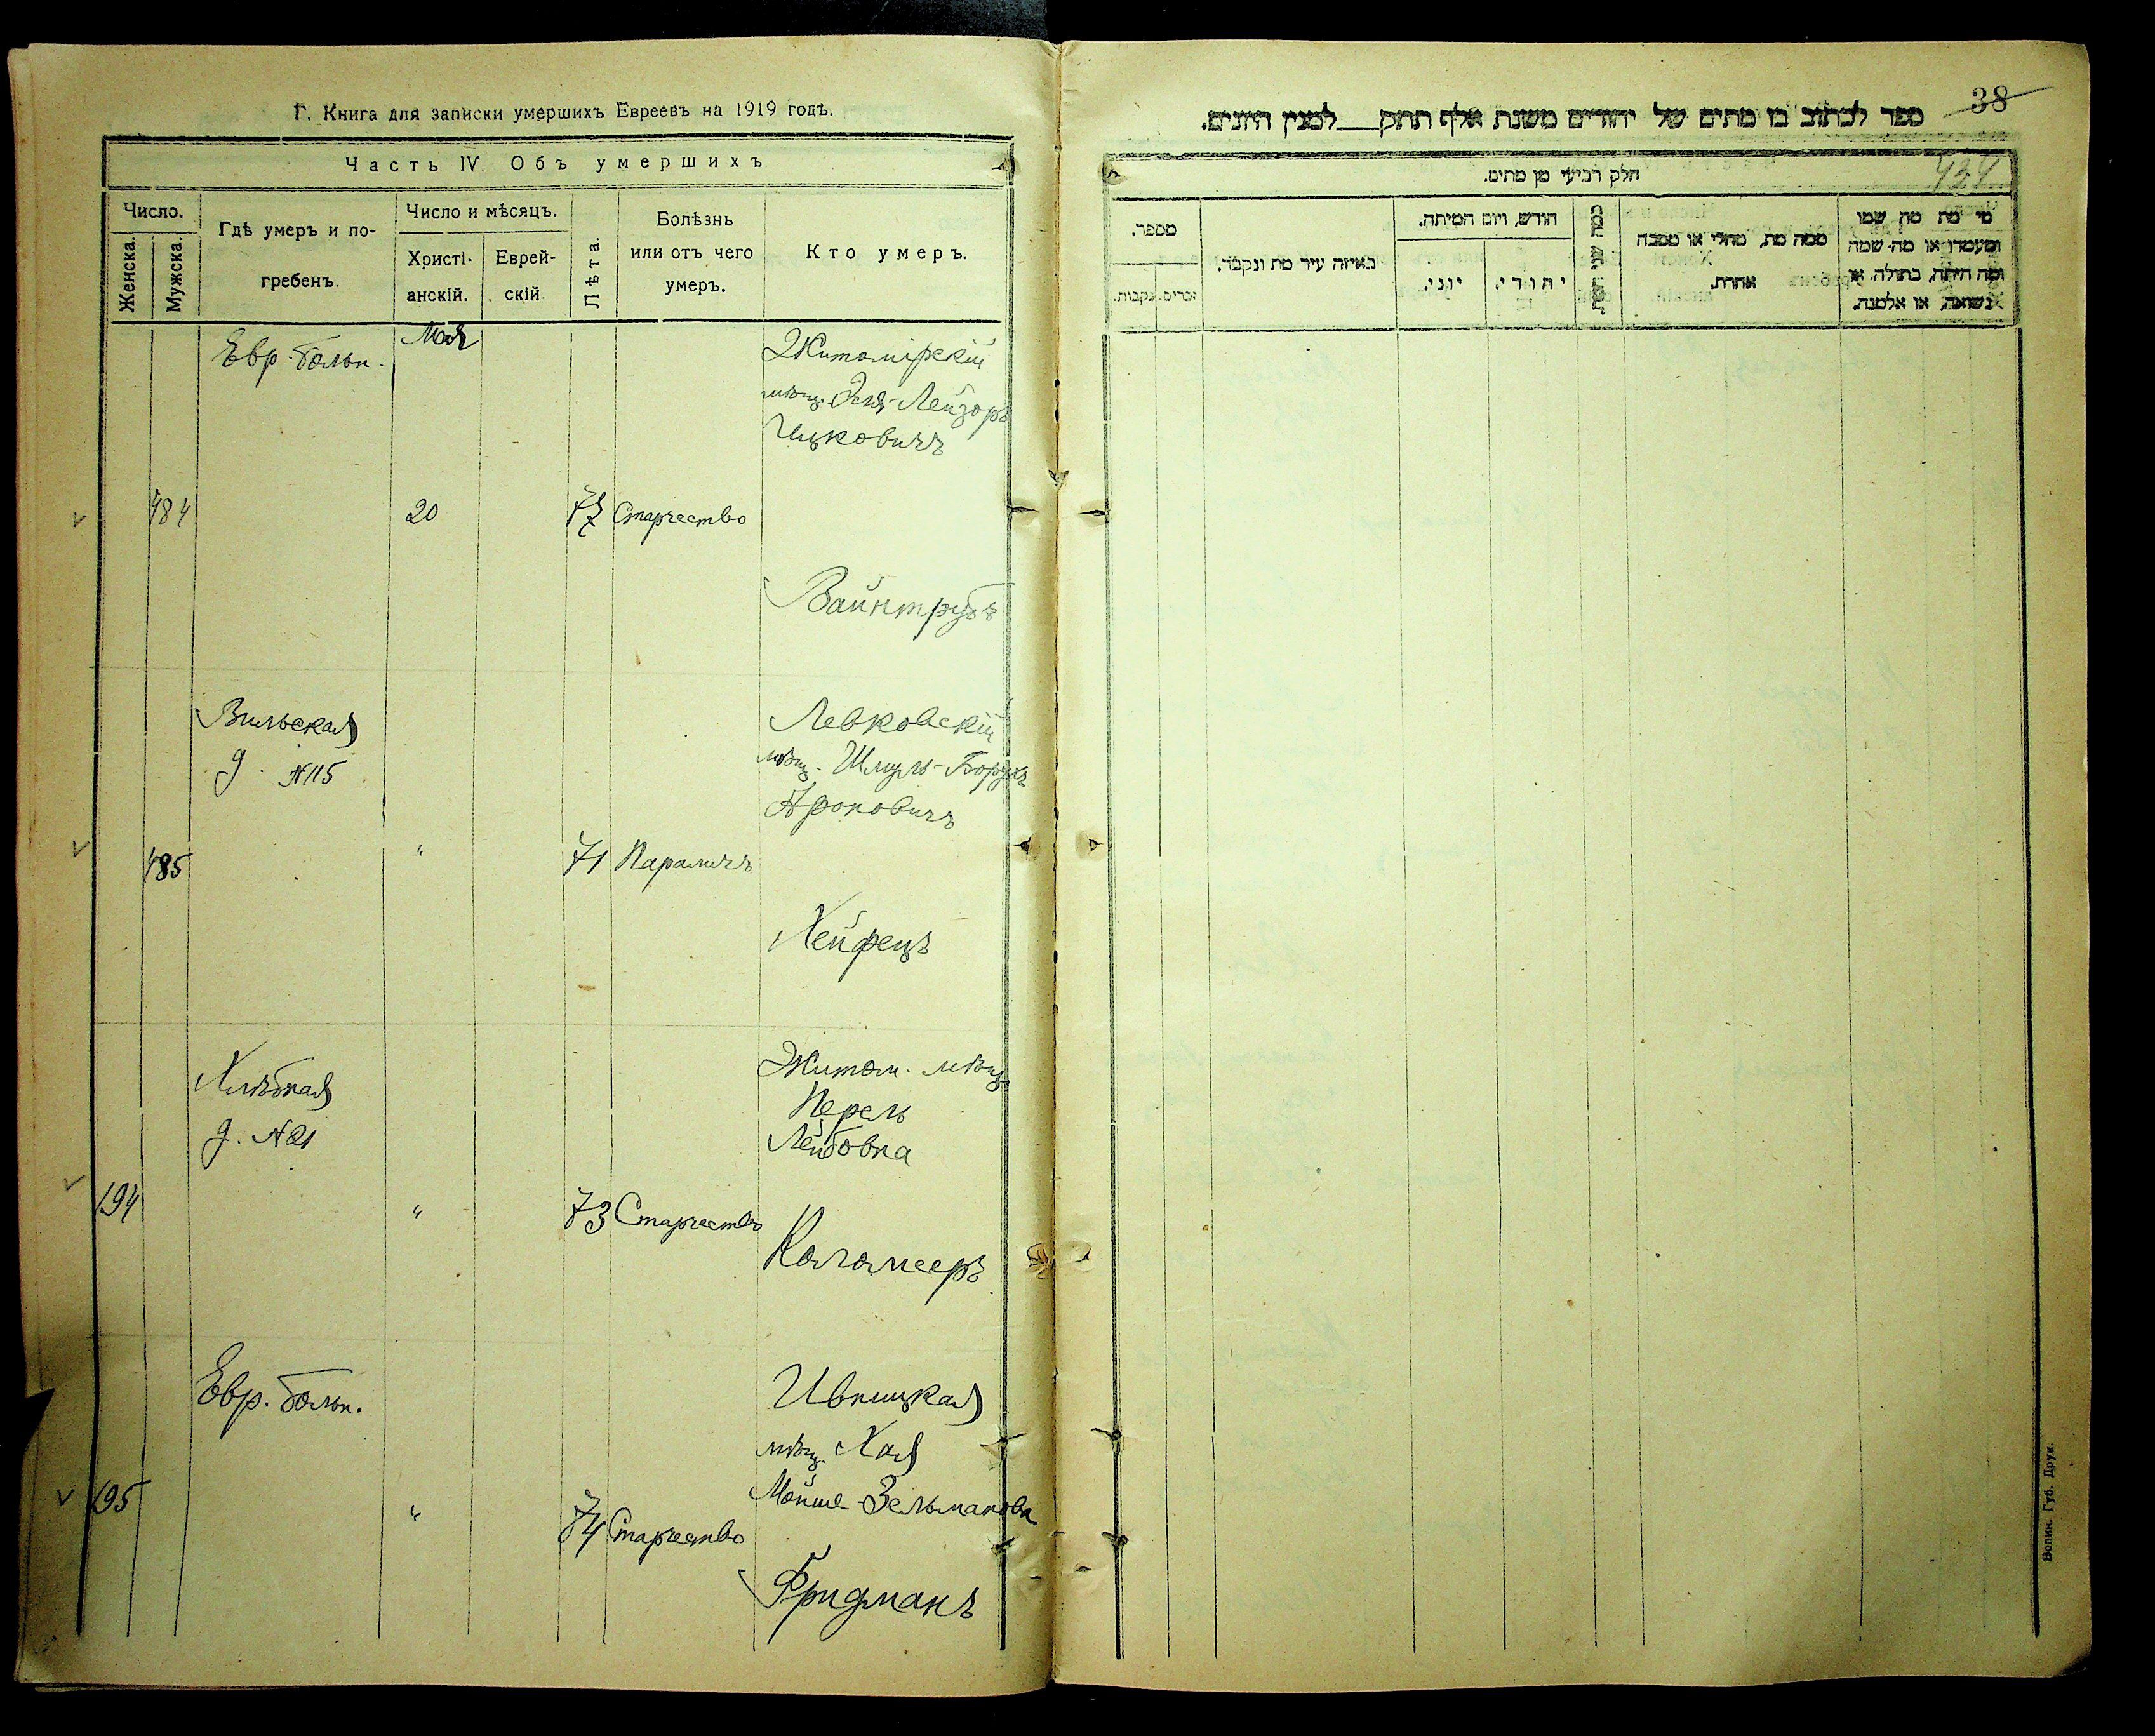 Г. Книга для записки умершихъ Евреевъ на 1919 годъ.
Часть IV Объ умершихъ
Число.
Женска.
Мужска.
Гдѣ умеръ и по-
гребенъ.
Число и мѣсяцъ.
Христі-
анскій.
Еврей-
скій
Лѣта.
Болѣзнь
или отъ чего
умеръ.
Кто умеръ.
Евр. больн.
Мая
Житомірскій
мѣщ. Лейзоръ
Ицковичъ
484
20
77
Старчество
Вайнтрубъ
Вильская
д. №115
Левковскій
мѣщ. Шмуль-Борухъ
Ароновичъ
485
"
71
Параличъ
Хейфецъ
Хлѣбная
д. №21
Житом. мѣщ.
Перель
Лейбовна
194
"
73
Старчество
Коломееръ
Евр. больн.
Ивницкая
мѣщ. Хая
Мойше-Зельманова
195
"
74
Старчество
Фридманъ
38
ספר לכתוב בו מתים של יהודים משנת אלף תתק___ למנין היונים.
434
חלק רביעי מן מתים.
מספר.
זכרים.
נקבות.
באיזה עיר מת ונקבר.
חודש, ויום המיתה.
יוני.
יהודי.
כמה שני
ממה מת, מחלי או מסבה
אחרת.
מי מת מה שמו
ומעמדו או מה שמה
ומה היתה, בתולה, או
נשואה, או אלמנה.
Волин. Губ. Друк.